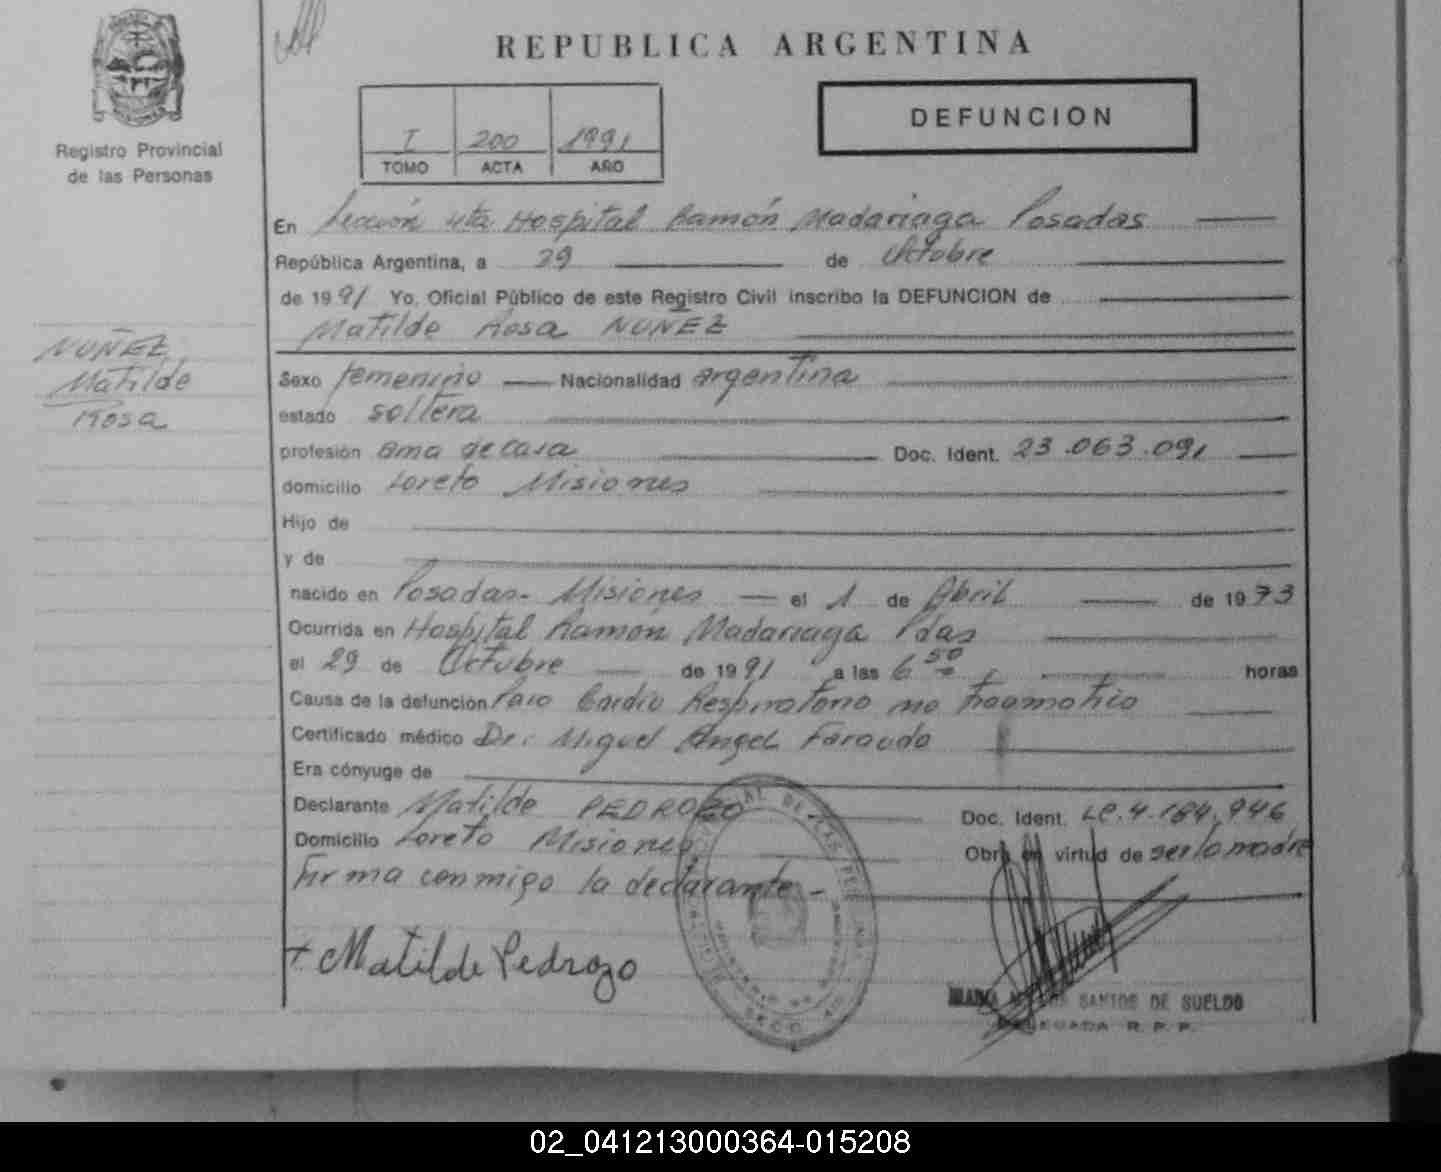 REPUBLICA ARGENTINA
DEFUNCION
Registro Provincial
de las Personas
I 200 1991
TOMO ACTA AÑO
En Sección 4ta Hospital Ramón Madariaga Posadas
República Argentina, a 29 de Octubre
de 1991 Yo, Oficial Público de este Registro Civil inscribo la DEFUNCION de
Matilde Rosa NUÑEZ
NUÑEZ
Matilde
Rosa
Sexo femenino Nacionalidad argentina
estado soltera
profesión ama de casa Doc. Ident. 23.063.091
domicilio Loreto Misiones
Hijo de
y de
nacido en Posadas- Misiones el 1 de Abril de 1973
Ocurrida en Hospital Ramón Madariaga Pdas
el 29 de Octubre de 1991 a las 6 50 horas
Causa de la defunción Paro Cardio Respiratorio no traumatico
Certificado médico Dr: Miguel Angel Faraudo
Era cónyuge de
Declarante Matilde PEDROZO Doc. Ident. LC.4.184.946
Domicilio Loreto Misiones Obra en virtud de ser la madre
Firma conmigo la declarante-
+ Matilde Pedrozo
SANTOS DE SUELDO
DELEGADA R. P. P.
02_041213000364-015208